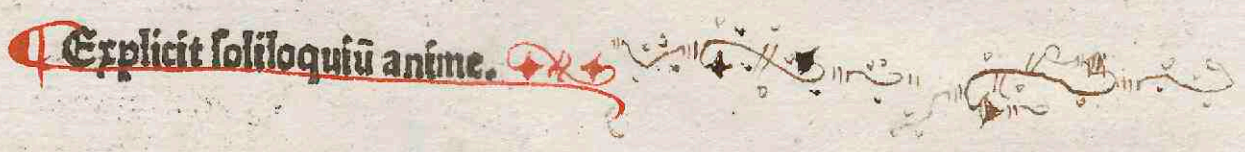 ¶ Explicit ſoliloquiū anime.